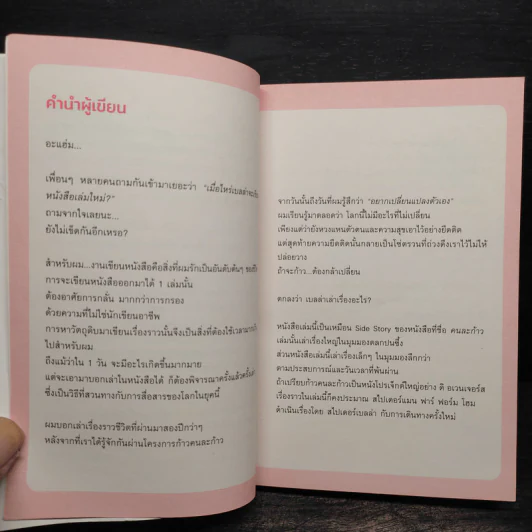 คำนำผู้เขียน
อะแฮ่ม...
เพื่อนๆ หลายคนถามกันเข้ามาเยอะว่า "เมื่อไหร่เบลล่าจะเขียน
หนังสือเล่มใหม่?"
ถามจากใจเลยนะ...
ยังไม่เข็ดกันอีกเหรอ?
สำหรับผม...งานเขียนหนังสือคือสิ่งที่ผมรักเป็นอันดับต้นๆ
การจะเขียนหนังสือออกมาได้ 1 เล่มนั้น
ต้องอาศัยการกลั่น มากกว่าการกรอง
ด้วยความที่ไม่ใช่นักเขียนอาชีพ
การหาวัตถุดิบมาเขียนเรื่องราวนั้นจึงเป็นสิ่งที่ต้องใช้เวลา
ไปสำหรับผม
ถึงแม้ว่าใน 1 วัน จะมีอะไรเกิดขึ้นมากมาย
แต่จะเอามาบอกเล่าในหนังสือได้ ก็ต้องพิจารณาครั้งแล้วครั้งเล่า
ซึ่งเป็นวิธีที่สวนทางกับการสื่อสารของโลกในยุคนี้
ผมบอกเล่าเรื่องราวชีวิตที่ผ่านมาสองปีกว่าๆ
หลังจากที่เราได้รู้จักกันผ่านโครงการก้าวคนละก้าว
จากวันนั้นถึงวันที่ผมรู้สึกว่า "อยากเปลี่ยนแปลงตัวเอง"
ผมเรียนรู้มาตลอดว่า โลกนี้ไม่มีอะไรที่ไม่เปลี่ยน
เพียงแต่ว่ายังหวงแหนตัวตนและความสุขเอาไว้อย่างยึดติด
แต่สุดท้ายความยึดตินั้นกลายเป็นโซ่ตรวนที่ถ่วงดึงเราไว้ไม่ให้
ปล่อยวาง
ถ้าจะก้าว...ต้องกล้าเปลี่ยน
ตกลงว่า เบลล่าเล่าเรื่องอะไร?
หนังสือเล่มนี้เป็นเหมือน Side Story ของหนังสือที่ชื่อ คนละก้าว
เล่มนั้นเล่าเรื่องใหญ่ในมุมมองตลกปนซึ้ง
ส่วนหนังสือเล่มนี้เล่าเรื่องเล็กๆ ในมุมมองลึกกว่า
ตามประสบการณ์และวันเวลาที่พ้นผ่าน
ถ้าเปรียบก้าวคนละก้าวเป็นหนังโปรเจ็กต์ใหญ่อย่าง ดิ อเวนเจอร์ส
เรื่องราวในเล่มนี้ก็คงประมาณ สไปเดอร์แมน ฟาร์ ฟอร์ม โฮม
ดำเนินเรื่องโดย สไปเดอร์เบลล่า กับการเดินทางครั้งใหม่